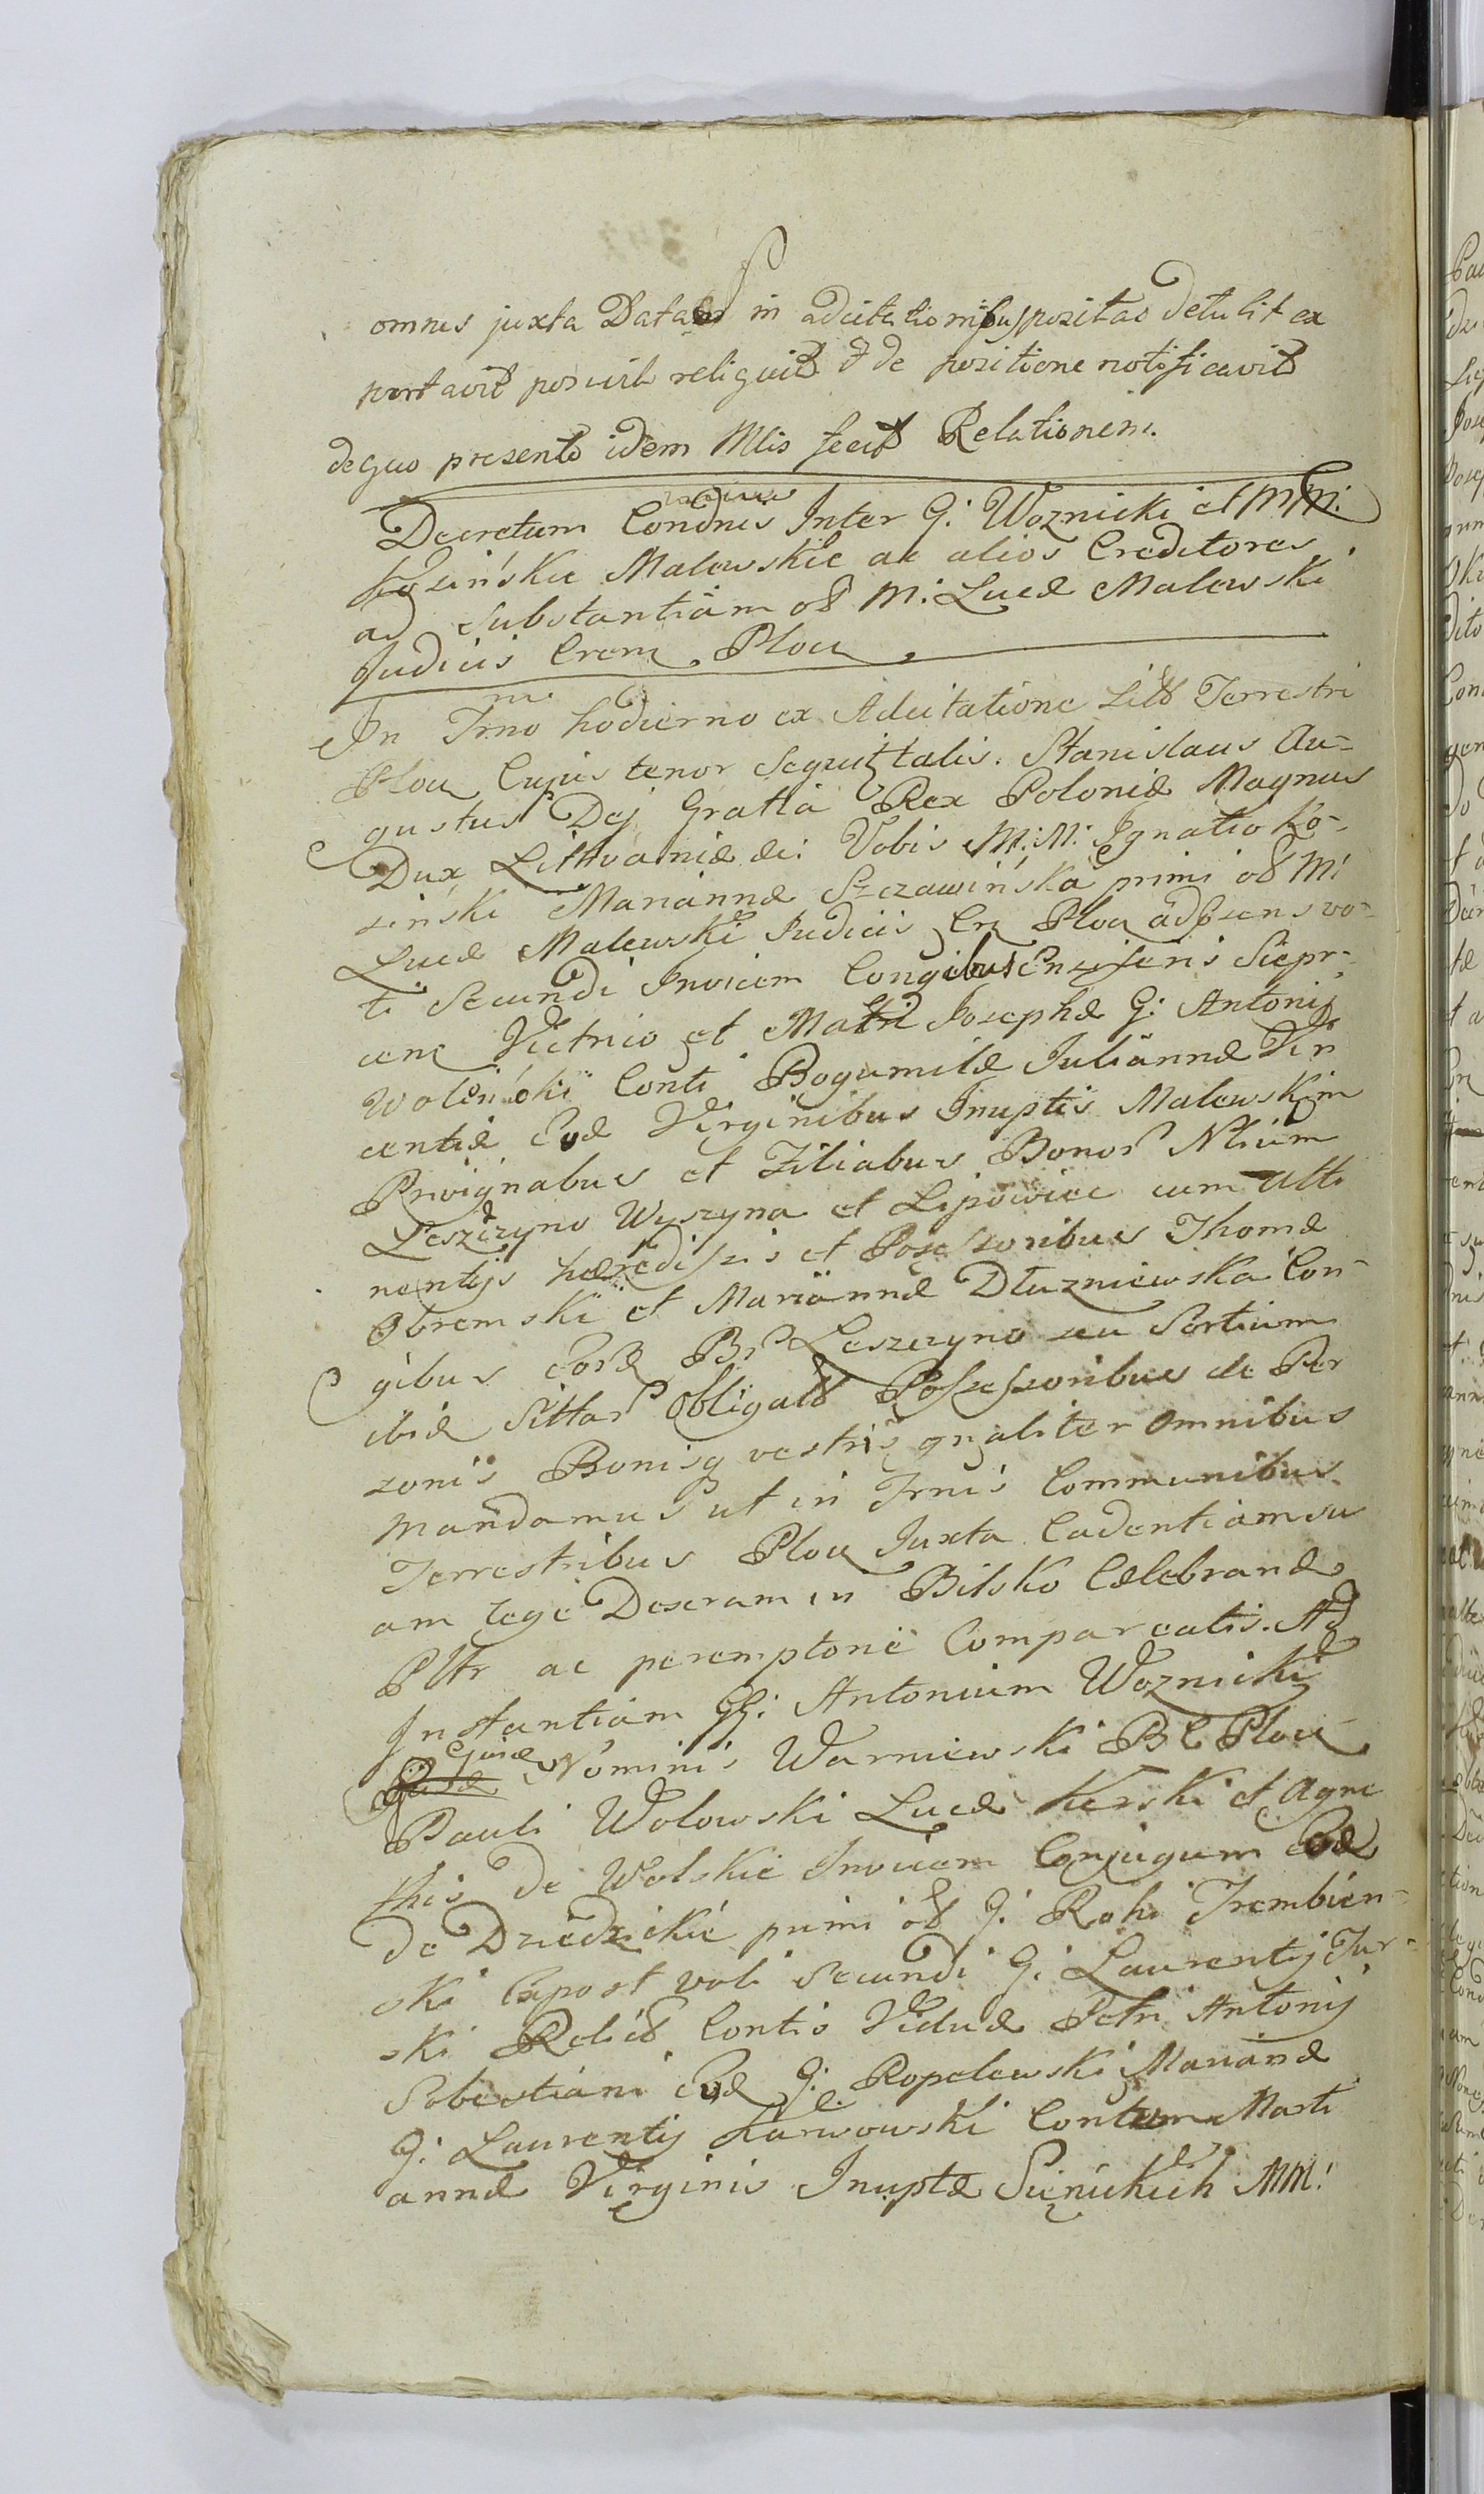 omnes juxta Datam in adcitationibus positas detulit ex
portavit posuit reliquit & de positione notificavit
dequo presento idem Mlis fecit Relationem.
Decretum Condnis Inter G: Woznicki et MM:
Kosińskie Malewskie ac alios Creditores
ad substantiam ol M: Lucæ Malewski
Judicis Crem Ploc
In Trno hodierno ex Adcitatione Litt Terrestri
Ploc Cujus tenor Sequit talis. Stanislaus Au=
gustus Dej Gratia Rex Poloniæ Magnus
Dux Lithvaniæ &: Vobis M: M: Ignatio Ko-
siński Mariannæ Szczawińska primi ol M:
Lucæ Malewski Judicis Cr Ploc adpsens vo-
ti Secundi Invicem Congibus Ensiferis Siepr-
cen Victrico et Matri Josephæ G: Antonij
Woliński Conti Bogumilæ Juliannæ Vin
centiæ Eodæ Virginibus Inuptis Malewskim
Privignabus et Filiabus Bonor Nlium
Leszczyno Wyszyna et Lipowiec cum Atti
nentijs hæredibus et Possessoribus Thomæ
Obremski et Mariannæ Dłuzniewska Con-
gibus Eord Br Leszczyno seu Sortium
ibid Sittar Obligatt Possessoribus de Per
sonis Bonisq vestris gnaliter omnibus
Mandamus ut in Trnis Communibus
Terrestribus Ploc Juxta Cadentiam su
am lege Deseram in Bilsko Celebrand
Pltr ac peremptorie Compareatis. Ad
Instantiam GG: Antonium Woznicki
Ejusd Nominis Warniewski B C Ploc
Pauli Wolowski Lucæ Kerski et Agne
this de Wolskie Invicem Conjugum Eodæ
de Dziedzickie primi ol G: Rohi Trembien-
ski Expost voti Secundi G: Laurentij Tur-
ski Relict Contis Viduæ Petri Antonij
Sobestiani Eod G: Ropelewski Marianæ
G: Laurentij Karwowski Contem Marti
annæ Virginis Inuptæ Sienickich MM: